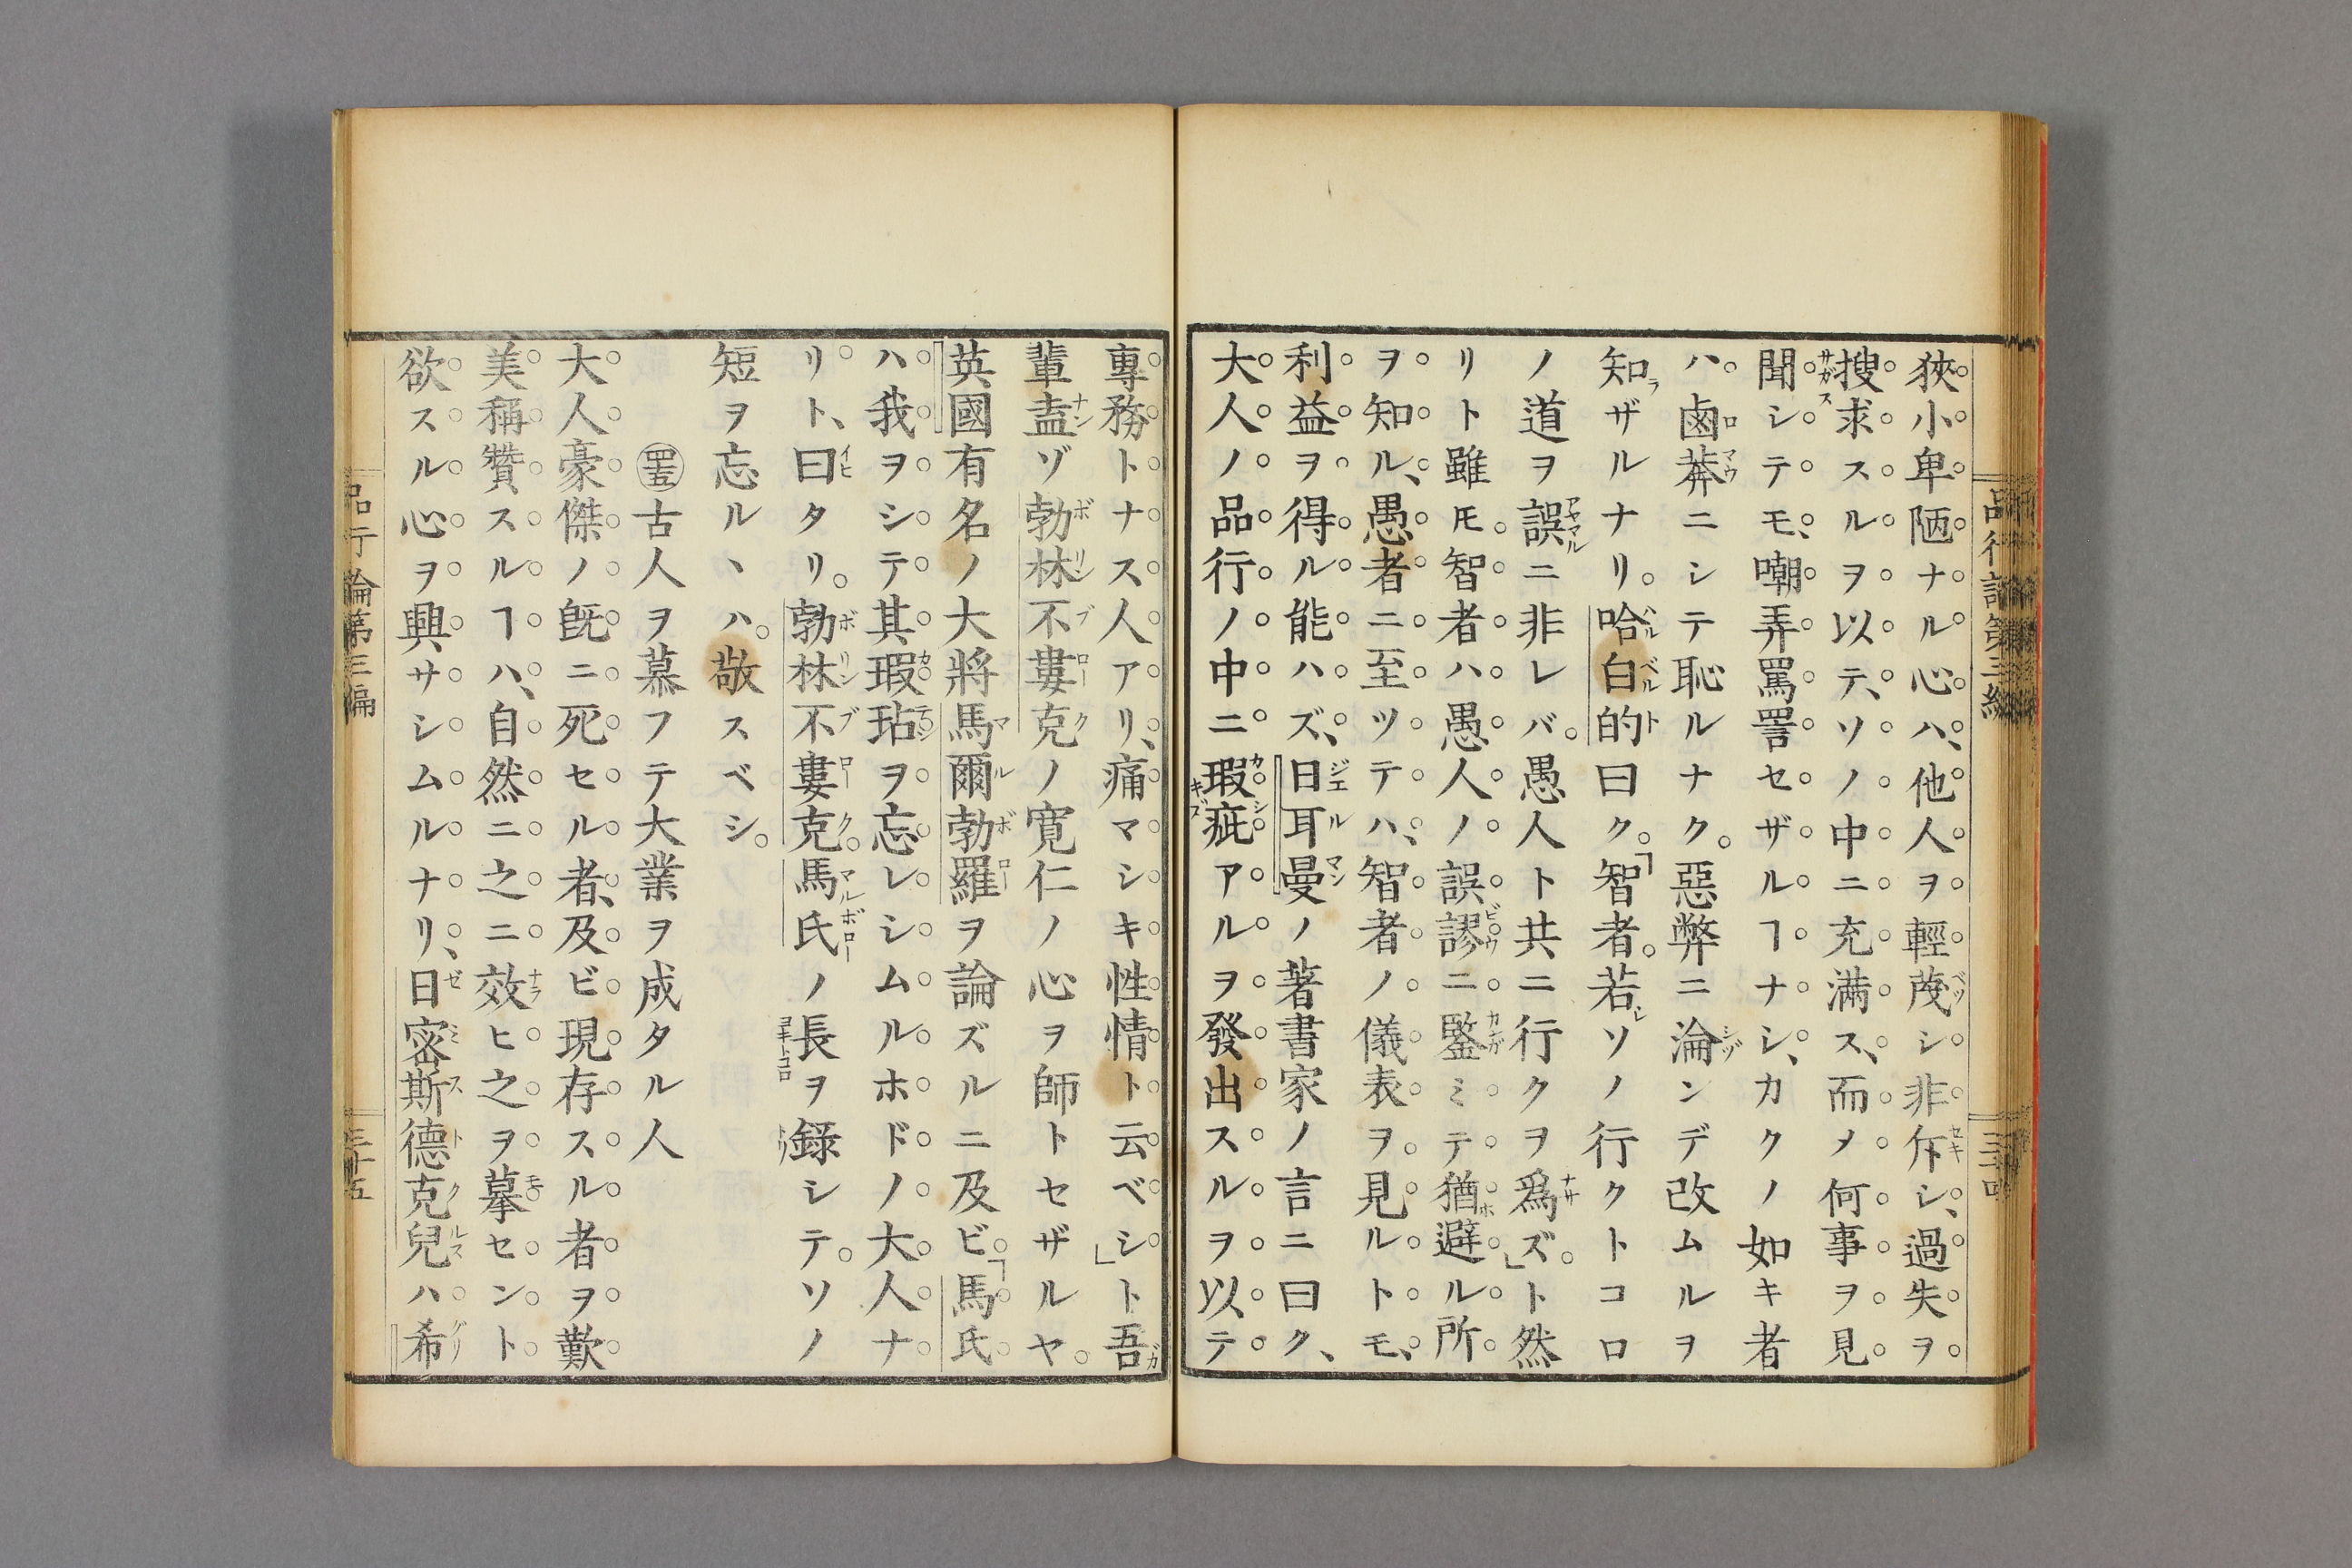 狹小卑陋ナル心ハ、他人ヲ輕蔑シ非斥シ、過失ヲ
搜求スルヲ以テ、ソノ中ニ充満ス、而メ何事ヲ見
聞シテモ、嘲弄罵詈セザルヿナシ、カクノ如キ者
ハ。鹵莽ニシテ恥ルナク。惡弊ニ淪ンデ改ムルヲ
知ザルナリ。哈白的曰ク。「智者。若シソノ行クトコロ
ノ道ヲ誤ニ非レバ。愚人ト共ニ行クヲ爲ズ。」ト然
リト雖𪜈。智者ハ愚人ノ誤謬ニ鑒ミテ猶避ル所
ヲ知ル、愚者ニ至ツテハ、智者ノ儀表ヲ見ルトモ、
利益ヲ得ル能ハズ、日耳曼ノ著書家ノ言ニ曰ク、
大人ノ品行ノ中ニ瑕疵アルヲ發出スルヲ以テ
專務トナス人アリ、痛マシキ性情ト云ベシ」ト吾
輩盍ゾ勃林不婁克ノ寛仁ノ心ヲ師トセザルヤ。
英國有名ノ大將馬爾勃羅ヲ論ズルニ及ビ。「馬氏
ハ我ヲシテ其瑕玷ヲ忘レシムルホドノ大人ナ
リト、曰タリ。勃林不婁克。馬氏ノ長ヲ録シテ。ソノ
短ヲ忘ルヽハ。敬スベシ。
㊺古人ヲ慕フテ大業ヲ成タル人
大人豪傑ノ既ニ死セル者、及ビ現存スル者ヲ歎
美稱贊スルヿハ、自然ニ之ニ效ヒ之ヲ摹セント
欲スル心ヲ興サシムルナリ、日密斯德克兒ハ希
品行論第三編
三十五